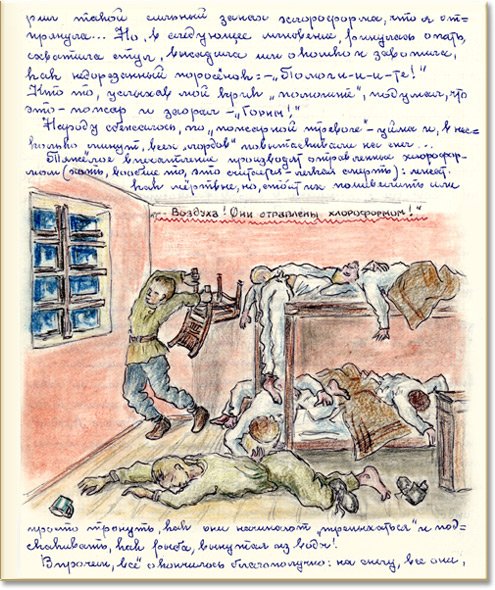 рил такой сильный запах хлороформа, что я от-
прянула... Но, в следующее мгновение, ринулась опять,
схватила стул, высадила им окошко и завопила,
как недорезанный поросёнок: – „Помоги-и-и-те!"
Кто то, услыхав мой вопль „помогите", подумал, что
это – пожар и заорал – „Горим!"
Народу сбежалось, по „пожарной тревоге" – уйма и, в нес-
колько минут, всех „ повытаскивали на снег...
Тяжёлое впечатление производят отравленные хлорофор-
мом (хоть, вообще то, это считается – лёгкая смерть): лежат,
как мёртвые, но, стоит их пошевелить или
„Воздуха! Они отравлены хлороформом!"
просто тронуть, как они начинают „трепыхаться" и под-
скакивать, как рыба, вынутая из воды!
Впрочем, всё окончилось благополучно: на снегу, все они,